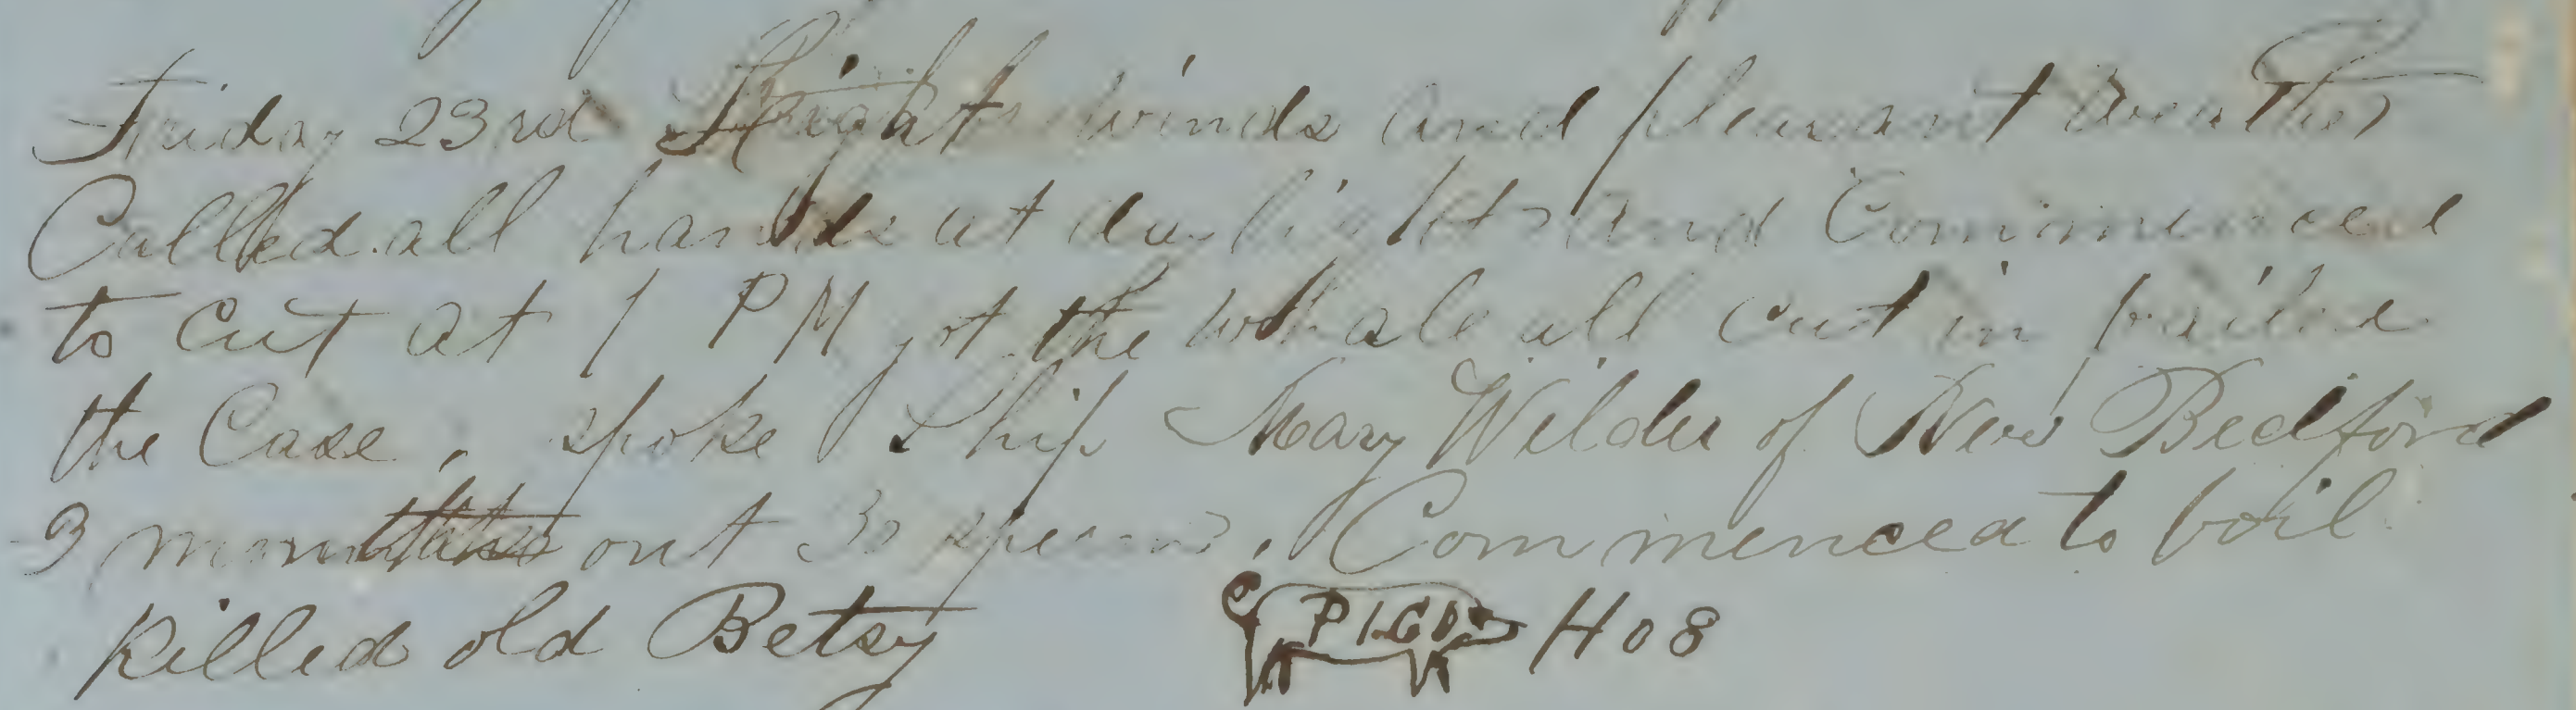 Friday 23rd Light winds and pleasant weather
Called all hands at daylight and Commenced
to cut at 1 PM got the whale all cut in bailed
the Case, spoke Ship Mary Wilder of New Bedford
3 months out 30 sperm, Commenced to boil
killed old Betsy PIGO HO8